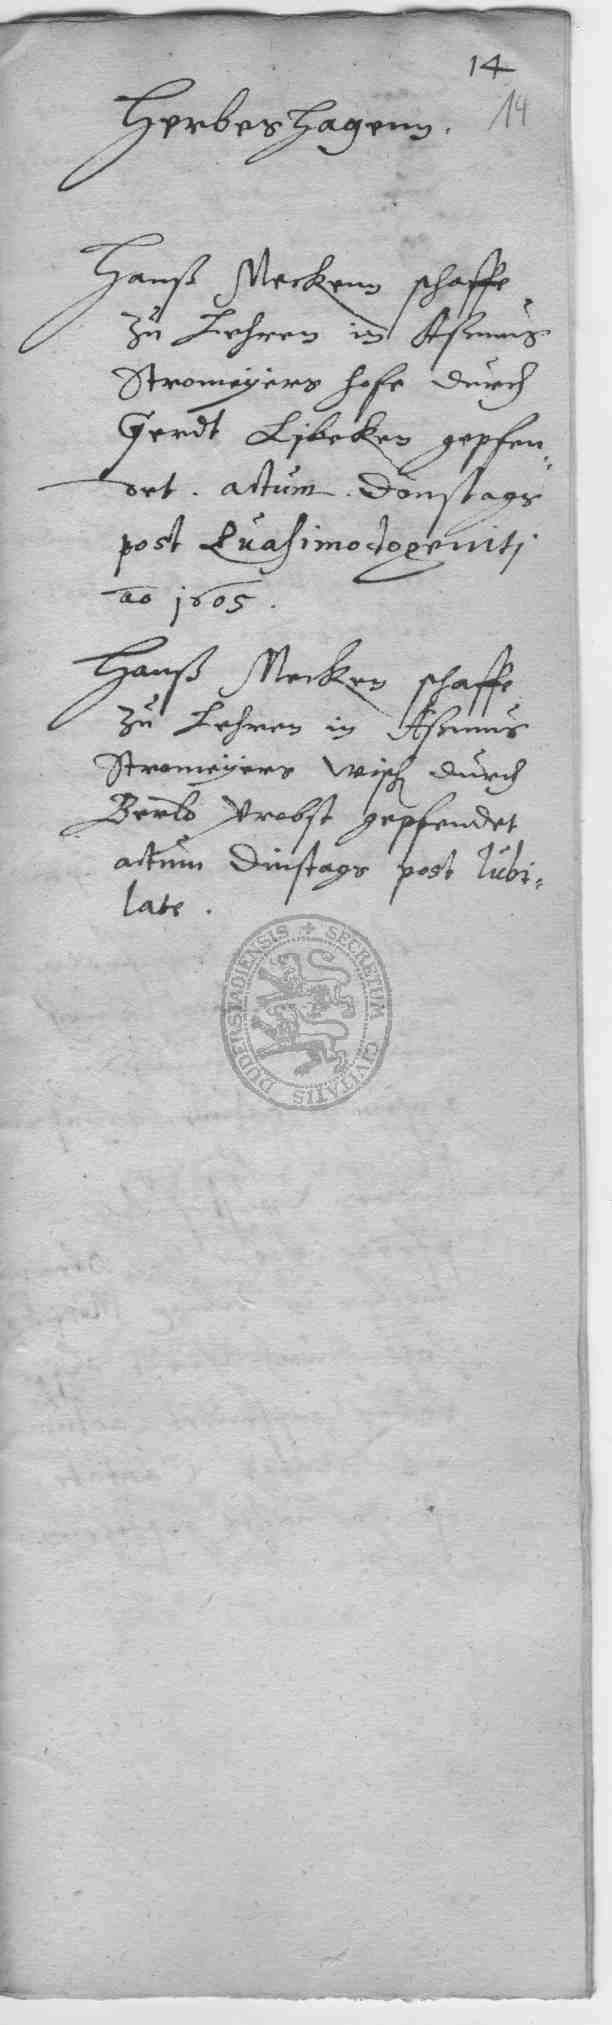 14
14
Herbeshagenn.
Hanß Meckenn schaffe
zu Lehren in Aßmus
Stromeyers hofe durch
Gerdt Libeken gepfen-
det. actum. Donstags
post Quasimodogeniti
ao 1605.
Hanß Mecken schaffe
zu Lehren in Aßmus
Stromeyers wisch durch
Probst gepfendet
actum Dinstags post Jubi-
late.
SECRETUM CIVITATIS DUDERSTADIENSIS